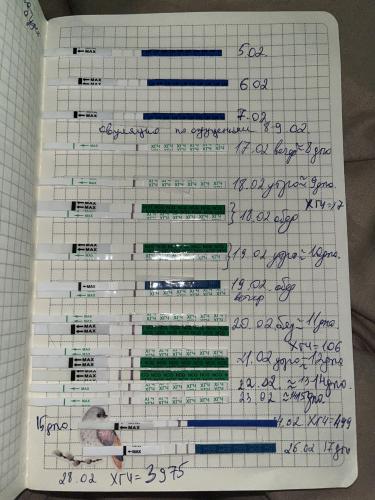 5.02
MAX
6.02
MAX
MAX
7.02
MAX
MAX
овуляция по ощущениям 8-9.02.
17.02 вечер ≈ 8 дпо
ХГЧ ХГЧ ХГЧ ХГЧ ХГЧ
18.02 утро ≈ 9 дпо.
ХГЧ ХГЧ ХГЧ ХГЧ ХГЧ
ХГЧ=17
MAX
MAX
18.02 обед
ХГЧ ХГЧ ХГЧ ХГЧ ХГЧ
MAX
MAX
19.02 утро ≈ 10 дпо.
19.02 обед
MAX
вечер
ХГЧ ХГЧ ХГЧ ХГЧ ХГЧ
20.02 ≈ 11 дпо
MAX
MAX
ХГЧ=106
MAX
MAX
21.02 утро ≈ 12 дпо
MAX
MAX
22.02 ≈ 13-14 дпо.
23.02
15 дпо.
.02 ХГЧ=499
26.02 17 дпо
28.02 ХГЧ=3975